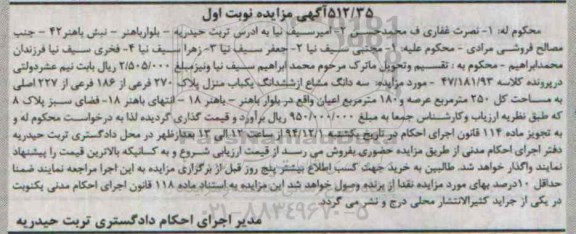 ۵۱۲/۳۵آگهی مزایده نوبت اول
محکوم له: ۱- نصرت غفاری ف محمدحسین ۲- امیرسیف نیا به ادرس تربت حیدریه - بلوارباهنر - نبش باهنر۴۲ - جنب
مصالح فروشی مرادی - محکوم علیه: ۱- مجتبی سیف نیا ۲- جعفر سیف نیا ۳- زهرا سیف نیا ۴- فخری سیف نیا فرزندان
محمدابراهیم - محکوم به: تقسیم وتحویل ماترک مرحوم محمد ابراهیم سیف نیا ونیزمبلغ ۲/۵۰۵/۰۰۰ ریال بابت نیم عشردولتی
درپرونده کلاسه ۴۷/۱۸۱/۹۳ - مورد مزایده: سه دانگ مشاع ازششدانگ یکباب منزل پلاک ۲۷۰ فرعی از ۱۸۶ فرعی از ۲۲۷ اصلی
به مساحت کل ۲۵۰ مترمربع عرصه و ۱۸۰ مترمربع اعیان واقع در بلوار باهنر - باهنر ۱۸ - انتهای باهنر ۱۸- فضای سبز پلاک ۸
که طبق نظریه ارزیاب وکارشناس جمعا به مبلغ ۹۵۰/۰۰۰/۰۰۰ ریال برآورد و قیمت گذاری گردیده لذا به درخواست محکوم له و
به تجویز ماده ۱۱۴ قانون اجرای احکام در تاریخ یکشنبه ۹۴/۱۲/۱ از ساعت ۱۲ الی ۱۳ بعدازظهر در محل دادگستری تربت حیدریه
دفتر اجرای احکام مدنی از طریق مزایده حضوری بفروش می رسد از قیمت ارزیابی شروع و به کسانیکه بالاترین قیمت را پیشنهاد
نمایند واگذار خواهد شد. طالبین به خرید جهت کسب اطلاع بیشتر پنج روز قبل از برگزاری مزایده به این اجرا مراجعه نمایند ضمنا
حداقل ۱۰درصد بهای مورد مزایده نقدا از برنده وصول خواهد شد این مزایده به استناد ماده ۱۱۸ قانون اجرای احکام مدنی یکنوبت
در یکی از جراید کثیرالانتشار محلی درج و نشر می گردد.
مدیر اجرای احکام دادگستری تربت حیدریه
۰۲۱-۸۸۳۴۹۶۷۰-۵